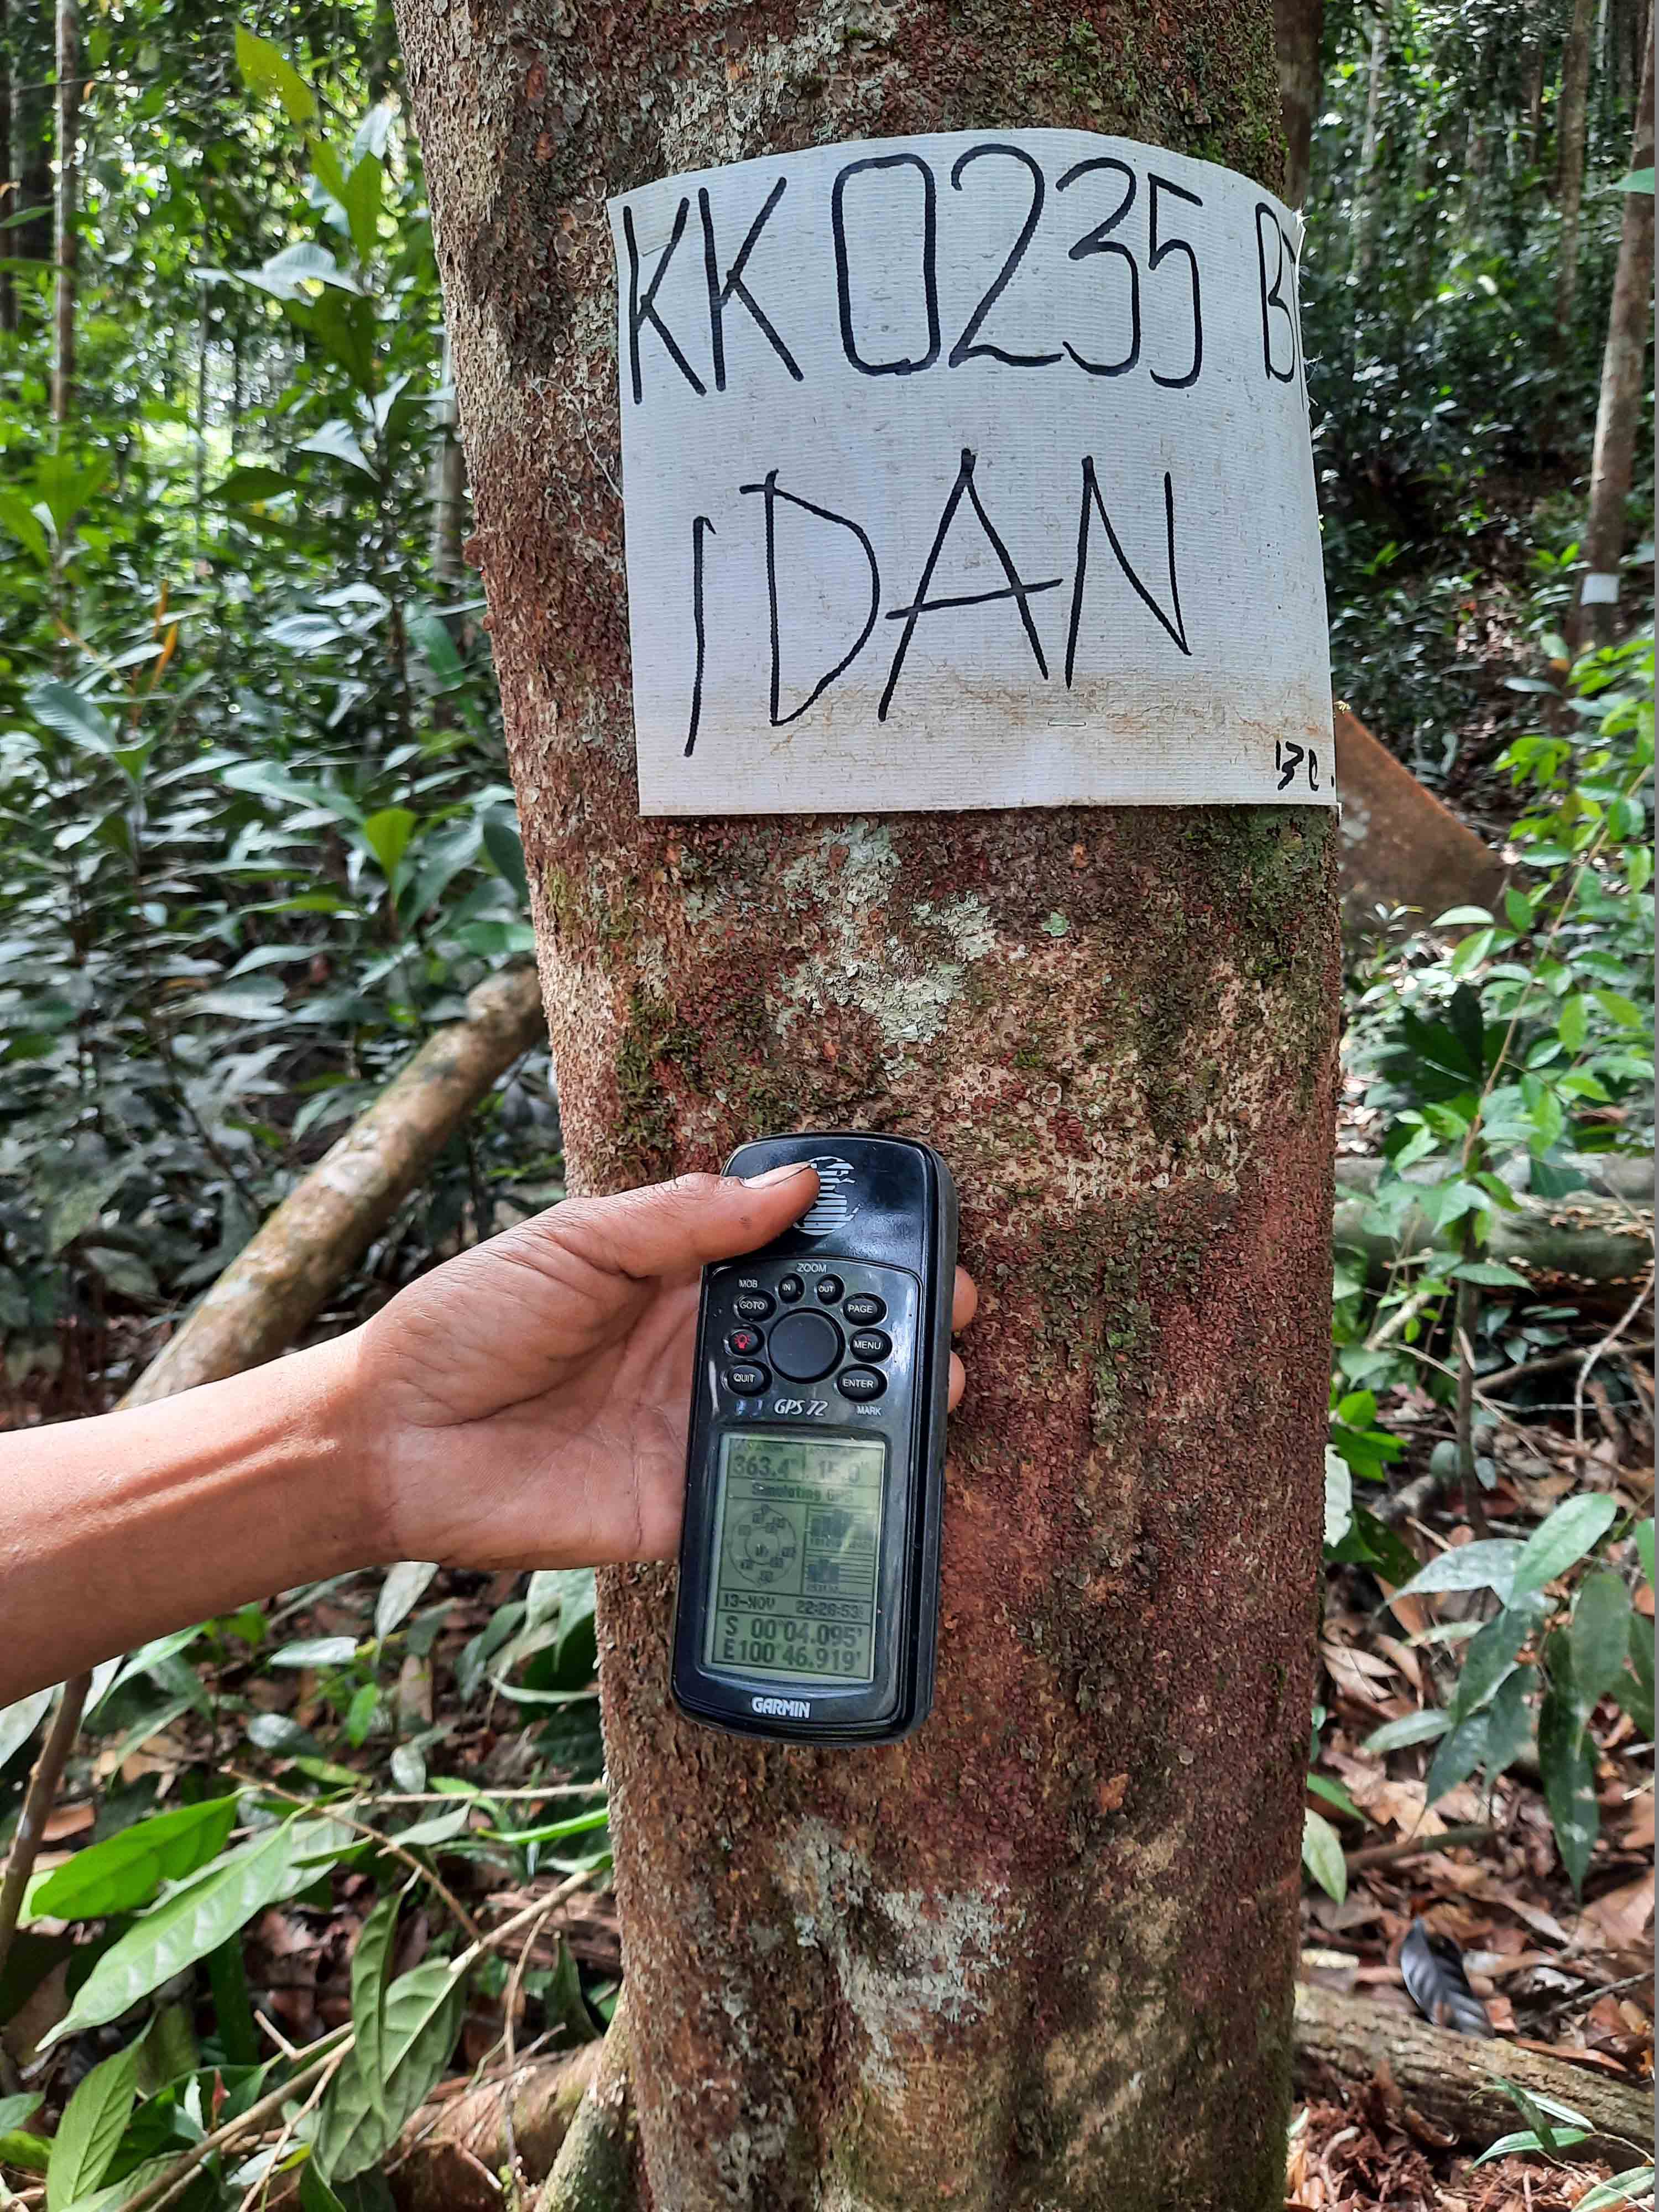 KK 0235 B
IDAN
130.
ZOOM
MOB IN OUT
GOTO PAGE
MENU
QUIT ENTER
GPS 72 MARK
363.4 15.0
Simulating GPS
13-NOV 22:26:53
S 00°04.095'
E100°46.919'
GARMIN